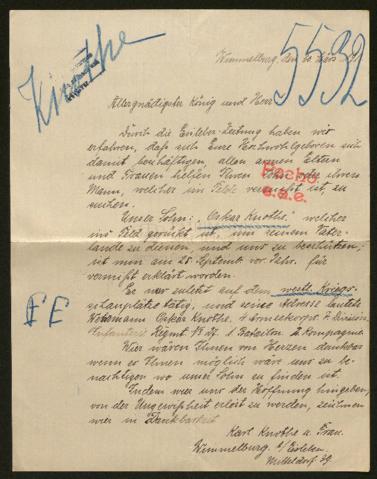 Knothe
5532
Wimmelburg, den 20 März
Allergnädigster König und Herr
Durch die Eisleber-Zeitung haben wir
erfahren, daß sich Eure Hochwohlgeboren sich
damit beschäftigen, allen armen Eltern
und Frauen helfen Ihren Sohn oder ihren
Mann, welcher im Felde vermißt ist, zu
suchen.
Unser Sohn: "Oskar Knothe" welcher
ins Feld gerückt ist, um unsern Vater-
lande zu dienen, und uns zu beschützen,
ist nun am 25. Septemb. vor. Jahr. für
vermißt erklärt worden.
Er war zuletzt auf dem westl. Kriegs-
schauplatz tätig, und seine Adresse lautete
Oskar Knothe. 4 Armeekorps 7 Division,
Infanterie Regmt 1 Batailon 2. Kompagnie.
Wier wären Ihnen von Herzen dankbar
wenn es Ihnen möglich wäre uns zu be-
nachtigen wo unser Sohn zu finden ist.
Indem wier uns der Hoffnung hingeben,
von der Ungewißheit erlöst zu werden, zeichnen
wier in Dankbarkeit
Karl Knothe u. Frau.
Wimmelburg b/ Eisleben.
Mitteldorf 39